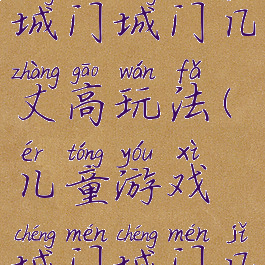 城门城门几
zhàng gāo wán fǎ
丈高玩法(
ér tóng yóu xì
儿童游戏
chéng mén chéng mén jǐ
城门城门几